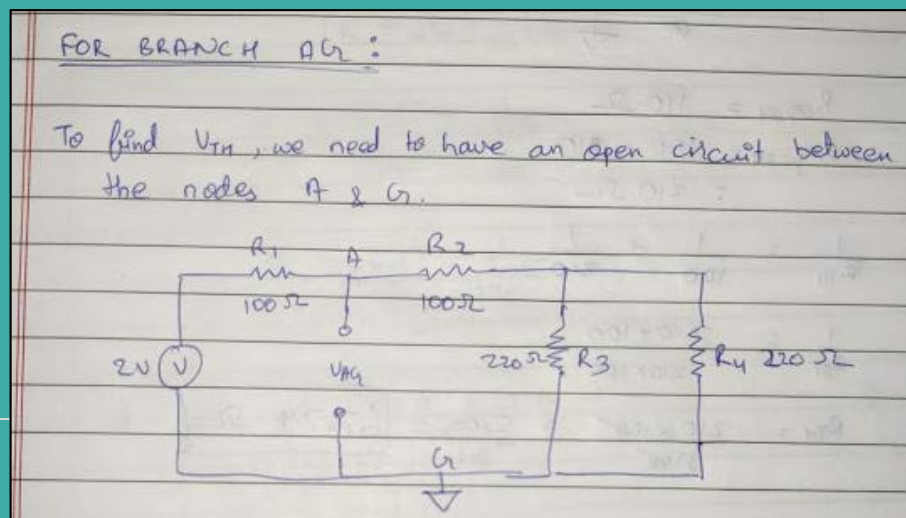 FOR BRANCH AG :
To find VTH, we need to have an open circuit between
the nodes A & G.
R1 A R2
100Ω 100Ω
2V V VAG 220Ω R3 R4 220Ω
G